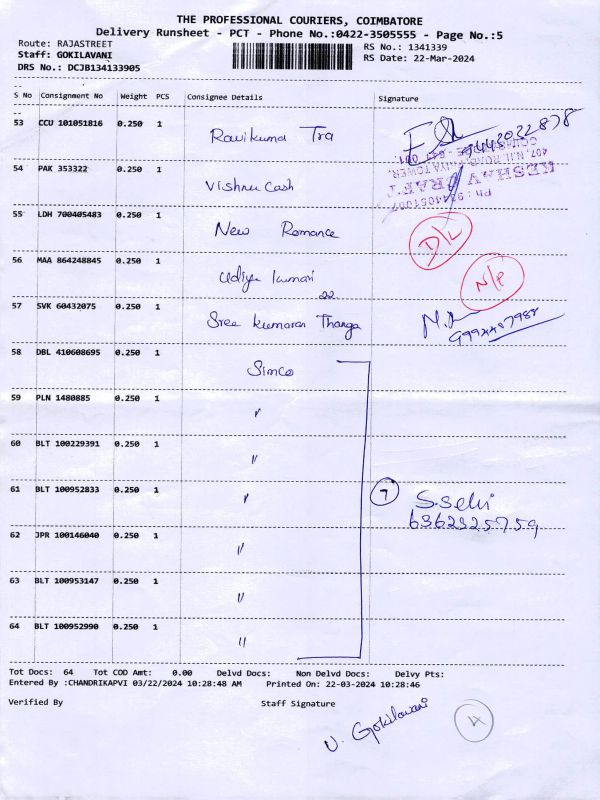 THE PROFESSIONAL COURIERS, COIMBATORE
Delivery Runsheet - PCT - Phone No.:0422-3505555 - Page No.:5
Route: RAJASTREET RS No.: 1341339
Staff: GOKILAVANI RS Date: 22-Mar-2024
DRS No.: DCJB134133905
S No Consignment No Weight PCS Consignee Details Signature
53 CCU 101051816 0.250 1 Ravikuma Tra
54 PAK 353322 0.250 1 Vishnu Cash
KESHAV
55 LDH 700405483 0.250 1 New Romance D/L
56 MAA 864248845 0.250 1 Udiya kumari N/P
22
57 SVK 60432075 0.250 1 Sree kumaran Thanga
58 DBL 410608695 0.250 1 Simco
59 PLN 1480885 0.250 1 "
60 BLT 100229391 0.250 1 "
61 BLT 100952833 0.250 1 " 7 S.selvi
6362325759
62 JPR 100146040 0.250 1 "
63 BLT 100953147 0.250 1 "
64 BLT 100952990 0.250 1 "
Tot Docs: 64 Tot COD Amt: 0.00 Delvd Docs: Non Delvd Docs: Delvy Pts:
Entered By :CHANDRIKAPVI 03/22/2024 10:28:48 AM Printed On: 22-03-2024 10:28:46
Verified By Staff Signature
V. Gokilavani 4